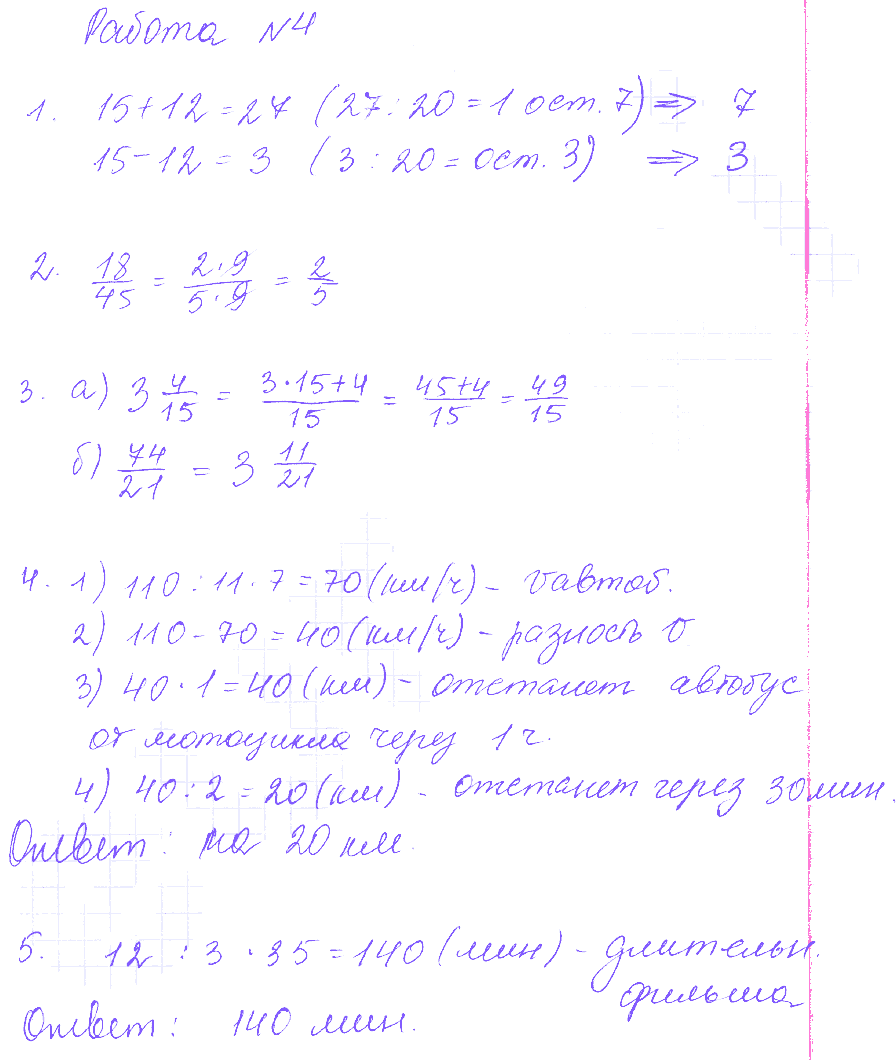 Работа №4
1. 15+12=27 (27:20=1 ост. 7) => 7
15-12=3 (3:20= ост. 3) => 3
2. 18/45 = 2·9/5·9 = 2/5
3. а) 3 4/15 = 3·15+4/15 = 45+4/15 = 49/15
б) 74/21 = 3 11/21
4. 1) 110:11·7=70(км/ч) - vавтоб.
2) 110-70=40(км/ч) - разность v
3) 40·1=40(км) - отстанет автобус
от мотоцикла через 1 ч.
4) 40:2=20(км) - отстанет через 30 мин.
Ответ: на 20 км.
5. 12 : 3 · 35 = 140 (мин) - длительн.
фильма
Ответ: 140 мин.